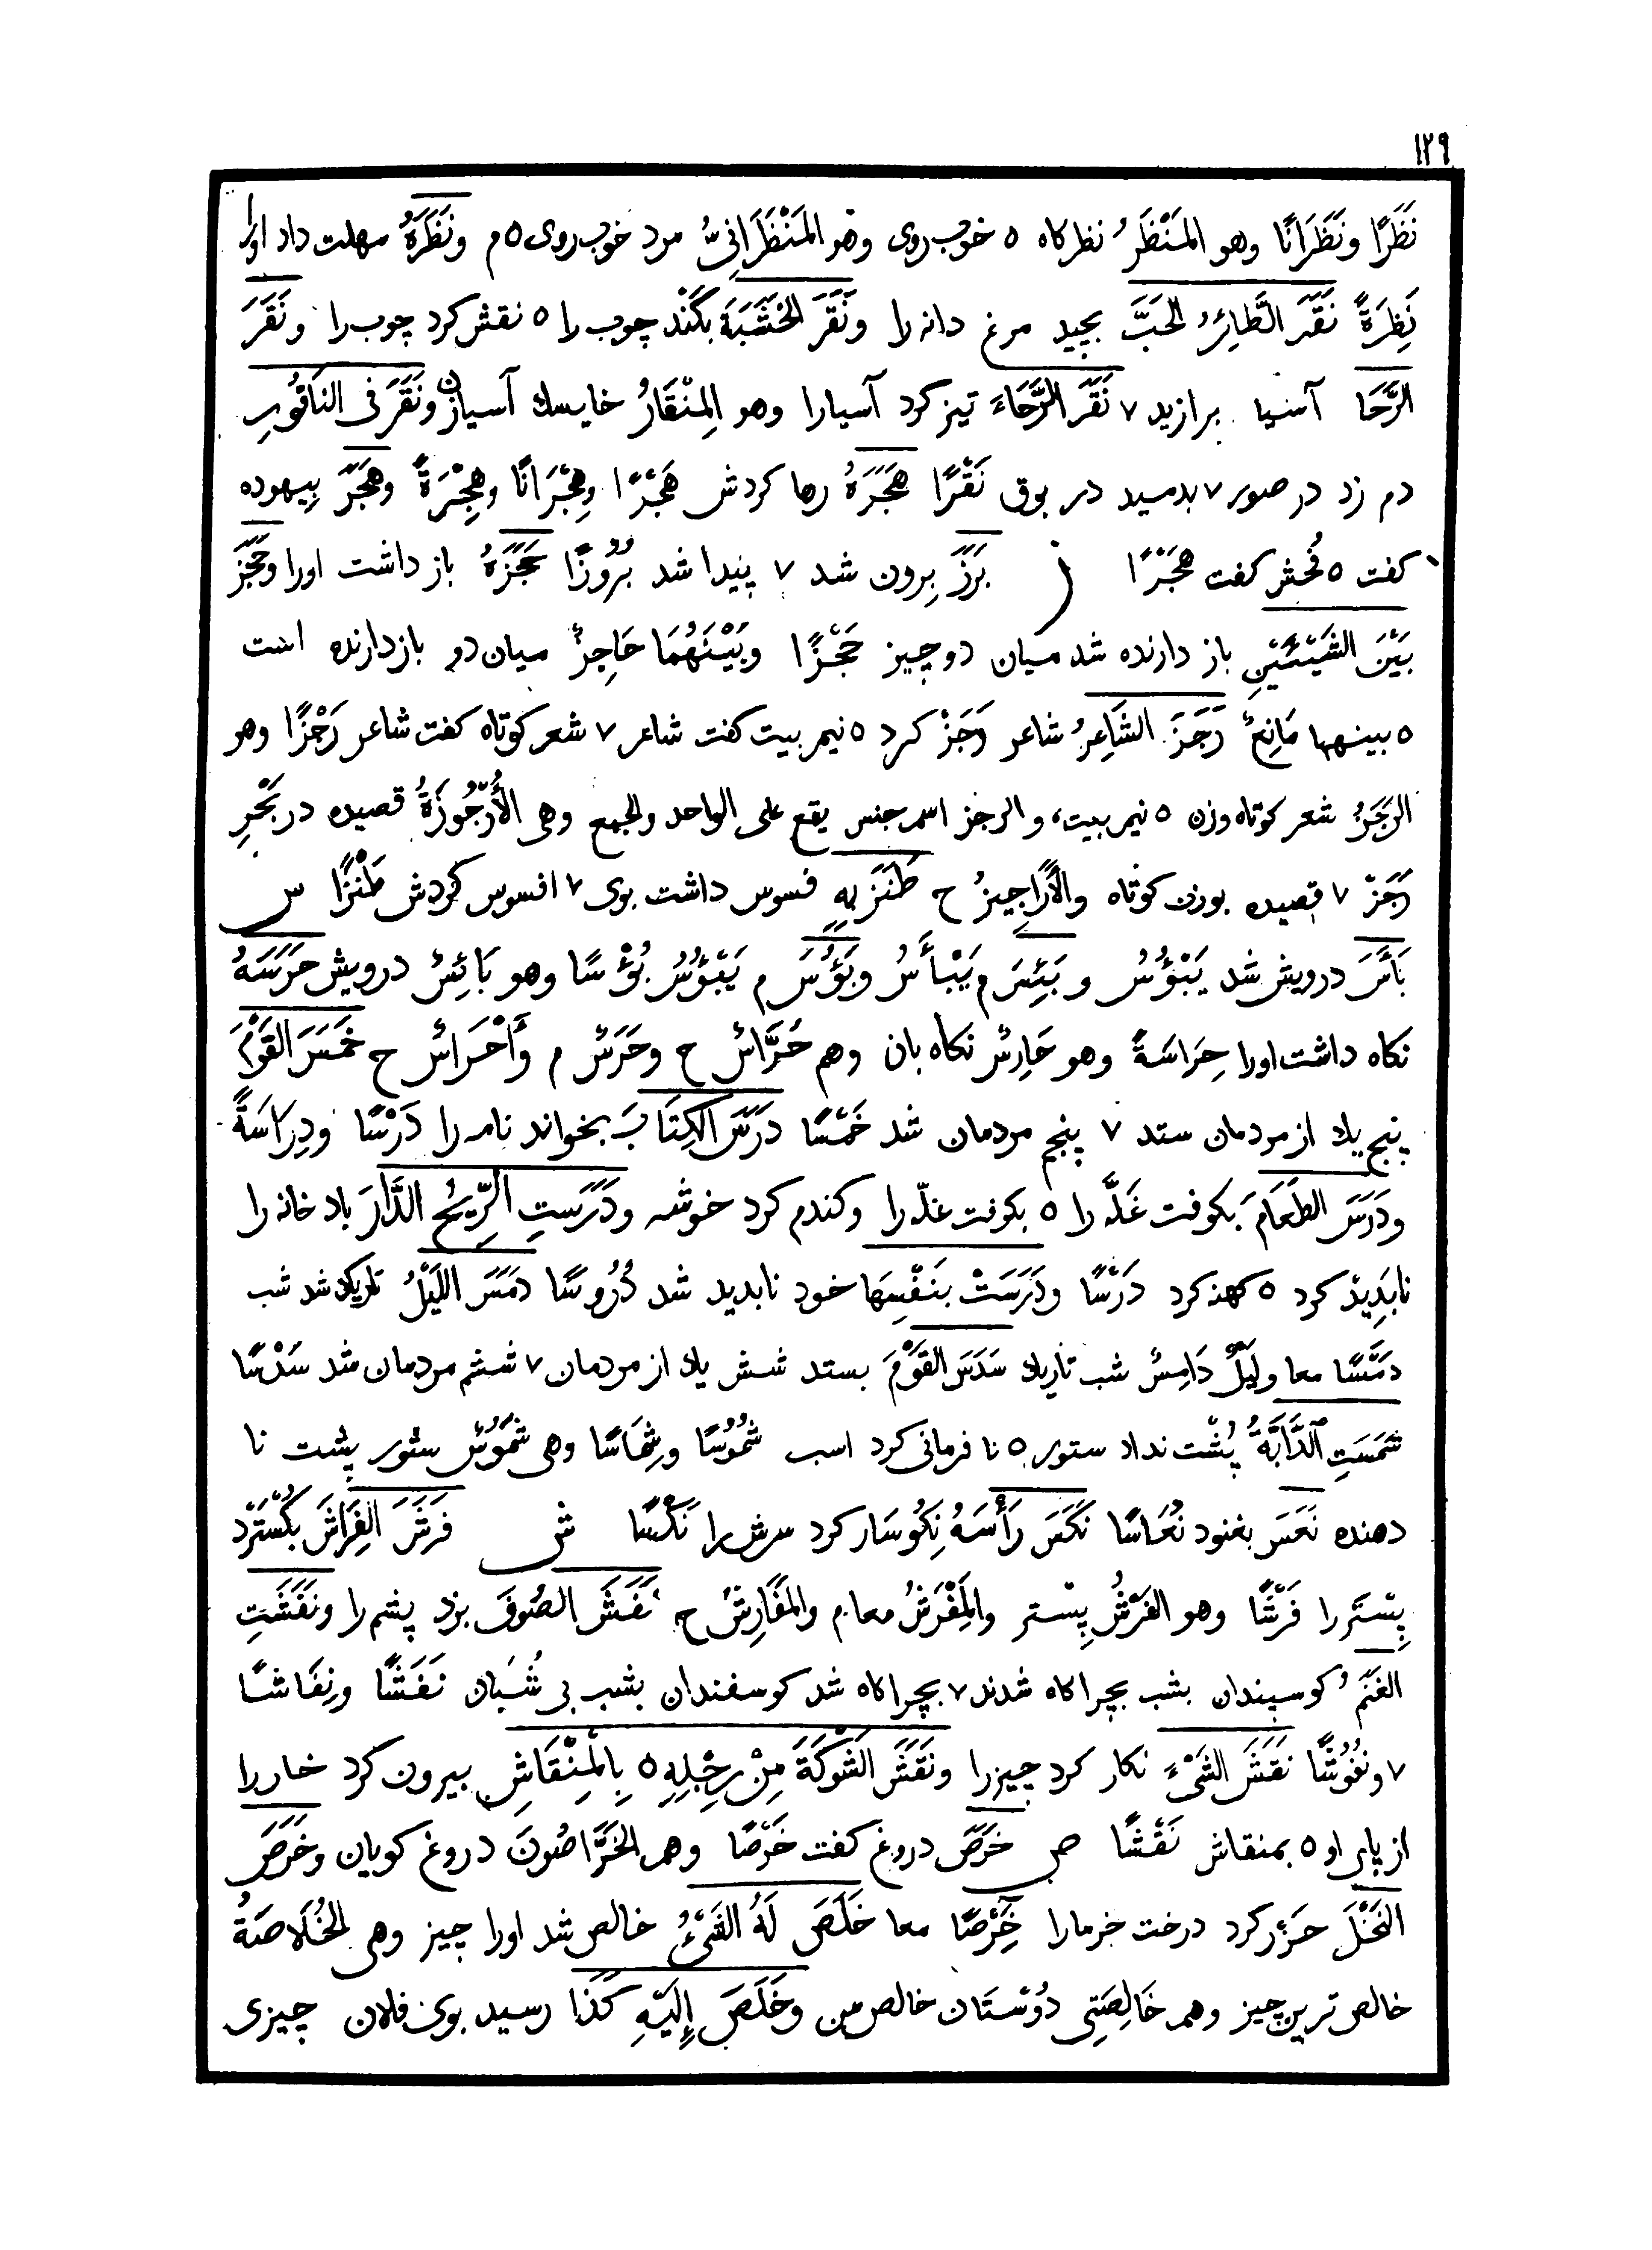 ١٢٩
نَظَرًا ونَظَرَانًا وهو المَنْظَرُ نظركاه ٥ خوب روى وهو المَنْظَرَانِىُّ مرد خوب روى ٥ م ونَظَرَهُ مهلت داد اورا
نَظِرَةً نَقَرَ الطَّائِرُ الحَبَّ بچيد مرغ دانه را ونَقَرَ الخَشَبَةَ بكَنْد چوب را ٥ نقش كرد چوب را ونَقَرَ
الرَّحَا آسيا برازيد ٧ نَقَرَ الرَّحَاءَ تيز كرد آسيارا وهو المِنْقَارُ خايسك آسيازن ونَقَرَ فى النَاقُورِ
دم زد در صور ٧ بدميد در بوق نَقْرًا هَجَرَهُ رها كردش هَجْرًا وهِجْرَانًا وهِجْرَةً وهَجَرَ بِيهوده
كفت ٥ فُحْش كفت هَجْرًا ز بَرَزَ بِرون شد ٧ پيدا شد بُرُوزًا حَجَزَهُ باز داشت اورا وحَجَزَ
بَيْنَ الشَيْئَيْنِ باز دارنده شد ميان دو چيز حَجْزًا وبَيْنَهُمَا حَاجِزٌ ميان دو بازدارنده است
٥ بينهما مَانِعٌ رَجَزَ الشَاعِرُ شاعر رَجَزْ كرد ٥ نيم بيت كفت شاعر ٧ شعر كوتاه كفت شاعر رَجْزًا وهو
الرَجَزُ شعر كوتاه وزن ٥ نيم بيت، والرجز اسم جنس يقع على الواحد والجمع وهى الأُرْجُوزَةُ قصيده در بَحْرِ
رَجَزْ ٧ قصيده بوزن كوتاه والأَرَاجِيزُ ح طَنَزَ بِهِ فسوس داشت بوى ٧ افسوس كردش طَنْزًا س
بَأَسَ درويش شد يَبْؤُسُ وبَئِسَ م يَبْأَسُ وبَؤُسَ م يَبْؤُسُ بُؤْسًا وهو بَائِسٌ درويش حَرَسَهُ
نكاه داشت اورا حِرَاسَةً وهو حَارِسٌ نكاه بان وهم حُرَّاسٌ ح وحَرَسٌ م وأَحْرَاسٌ ح خَمَسَ القَوْمَ
پنج يك از مردمان ستد ٧ پنجم مردمان شد خَمْسًا دَرَسَ الكِتَابَ بخواند نامه را دَرْسًا ودِرَاسَةً
ودَرَسَ الطَعَامَ بكوفت غَلَّه را ٥ بكوفت غلّه را وكندم كرد خوشه ودَرَسَتِ الرِّيحُ الدَّارَ باد خانه را
ناپَدِيدْ كرد ٥ كهنه كرد دَرْسًا ودَرَسَتْ بنَفْسِهَا خود ناپديد شد دُرُوسًا دمَسَ اللَيْلُ تاريك شد شب
دمَسًا معا ولَيْلٌ دَامِسٌ شب تاريك سَدَسَ القَوْمَ بستد شش يك از مردمان ٧ ششم مردمان شد سَدْسًا
شَمَسَتِ الدَّابَّةُ پُشْت نداد ستور ٥ نا فرمانى كرد اسب شُمُوسًا وشِمَاسًا وهى شَمُوسٌ ستور پشت نا
دهنده نَعَسَ بغنود نُعَاسًا نَكَسَ رَأْسَهُ نِكُوسَار كرد سرش را نَكْسًا ش فَرَشَ الفِرَاشَ بكُسْتَرْد
بِسْتَر را فَرْشًا وهو الفَرْشُ بِسْتر والمِفْرَشُ معا م والمَفَارِشُ ح نَفَشَ الصُوفَ بزد پشم را ونفَشَتِ
الغَنَمُ كوسپندان بشب بچراكاه شدند ٧ بچراكاه شد كوسفندان بشب بى شُبَان نَفَشًا ونِفَاشًا
٧ ونُفُوشًا نقَشَ الشَىْءَ نكار كرد چيز را ونَقَشَ الشَوْكَةَ مِنْ رِجْلِهِ ٥ بِالْمِنْقَاشِ بيرون كرد خار را
از پاى او ٥ بمنقاش نَقْشًا ص خَرَصَ دروغ كفت خَرْصًا وهم الخَرَّاصُونَ دروغ كويان وخَرَصَ
النَخْلَ حَزْر كرد درخت خرما را خَرْصًا معا خَلَصَ لَهُ الشَىْءُ خالص شد اورا چيز وهى الخُلَاصَةُ
خالص ترين چيز وهم خَالِصَتِى دُوسْتَان خالص من وخَلَصَ إِلَيْهِ كَذَا رسيد بوى فلان چيزى